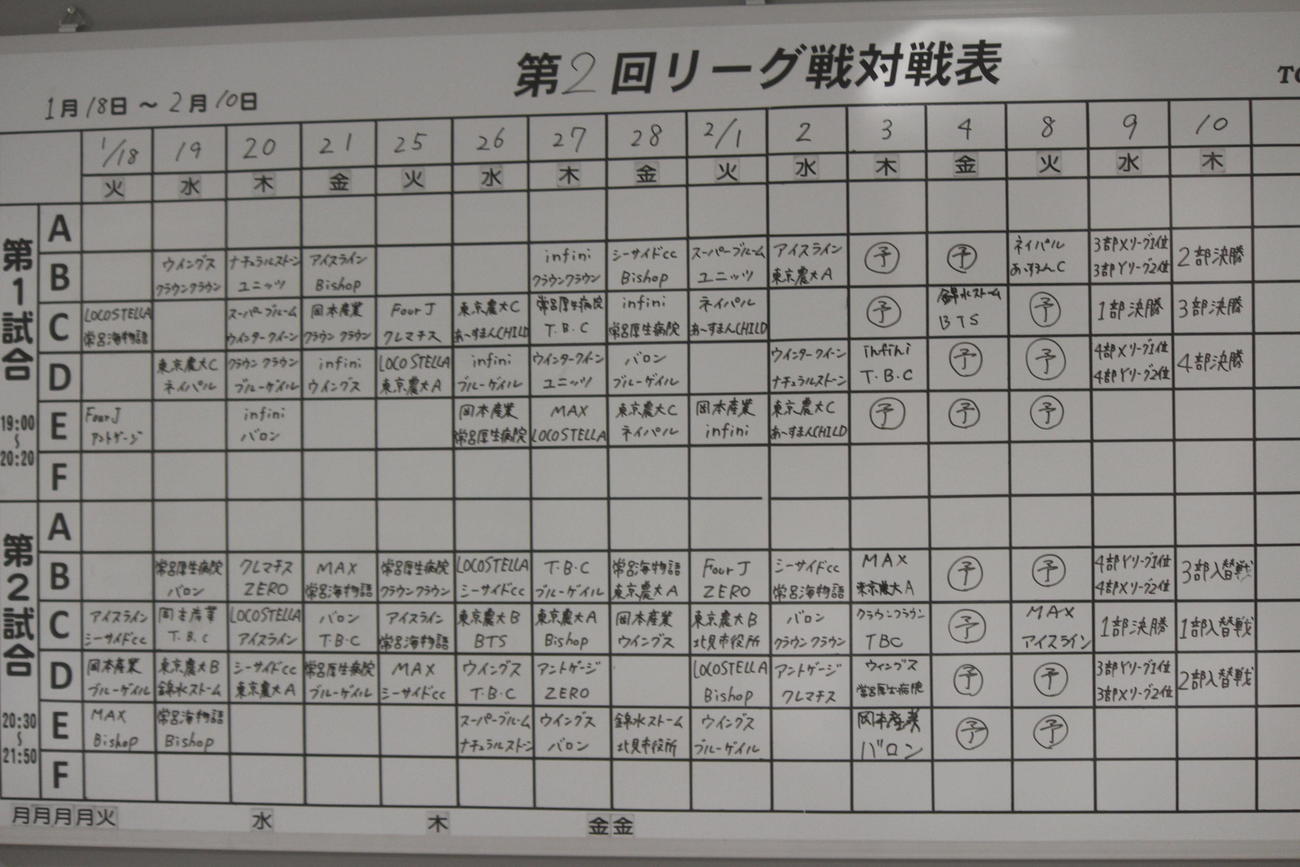 第2回リーグ戦対戦表
1月18日 ～ 2月10日
1/18 19 20 21 25 26 27 28 2/1 2 3 4 8 9 10
火 水 木 金 火 水 木 金 火 水 木 金 火 水 木
第1試合
19:00
～
20:20
A
B
ウイングス ナチュラルストーン アイスライン infini シーサイドcc スーパーブルーム アイスライン 予 予 ネイパル 3部Xリーグ1位 2部決勝
クラウンクラウン ユニッツ Bishop クラウンクラウン Bishop ユニッツ 東京農大A あ〜すまんC 3部Yリーグ2位
C
LOCOSTELLA スーパーブルーム 岡本産業 Four J 東京農大C 常呂厚生病院 infini ネイパル 予 錦水ストーム 予 1部決勝 3部決勝
常呂海物語 ウインタークイーン クラウンクラウン クレマチス あ〜すまんCHILD T・B・C 常呂厚生病院 あ〜すまんCHILD BTS
D
東京農大C クラウンクラウン infini LOCOSTELLA infini ウインタークイーン バロン ウインタークイーン infini 予 予 4部Xリーグ1位 4部決勝
ネイパル ブルーゲイル ウイングス 東京農大A ブルーゲイル ユニッツ ブルーゲイル ナチュラルストーン T・B・C 4部Yリーグ2位
E
Four J infini 岡本産業 MAX 東京農大C 岡本産業 東京農大C 予 予 予
アントゲージ バロン 常呂厚生病院 LOCOSTELLA ネイパル infini あ〜すまんCHILD
F
第2試合
20:30
～
21:50
A
B
常呂厚生病院 クレマチス MAX 常呂厚生病院 LOCOSTELLA T・B・C 常呂海物語 Four J シーサイドcc MAX 予 予 4部Yリーグ1位 3部入替戦
バロン ZERO 常呂海物語 クラウンクラウン シーサイドcc ブルーゲイル 東京農大A ZERO 常呂海物語 東京農大A 4部Xリーグ2位
C
アイスライン 岡本産業 LOCOSTELLA バロン アイスライン 東京農大B 東京農大A 岡本産業 東京農大B バロン クラウンクラウン 予 MAX 1部決勝 1部入替戦
シーサイドcc T・B・C アイスライン T・B・C 常呂海物語 BTS Bishop ウイングス 北見市役所 クラウンクラウン TBC アイスライン
D
岡本産業 東京農大B シーサイドcc 常呂厚生病院 MAX ウイングス アントゲージ LOCOSTELLA アントゲージ ウィングス 予 予 3部Yリーグ1位 2部入替戦
ブルーゲイル 錦水ストーム 東京農大A ブルーゲイル シーサイドcc T・B・C ZERO Bishop クレマチス 常呂厚生病院 3部Xリーグ2位
E
MAX 常呂海物語 スーパーブルーム ウイングス 錦水ストーム ウイングス 岡本産業 予 予
Bishop Bishop ナチュラルストーン バロン 北見市役所 ブルーゲイル バロン
F
月月月月火 水 木 金金